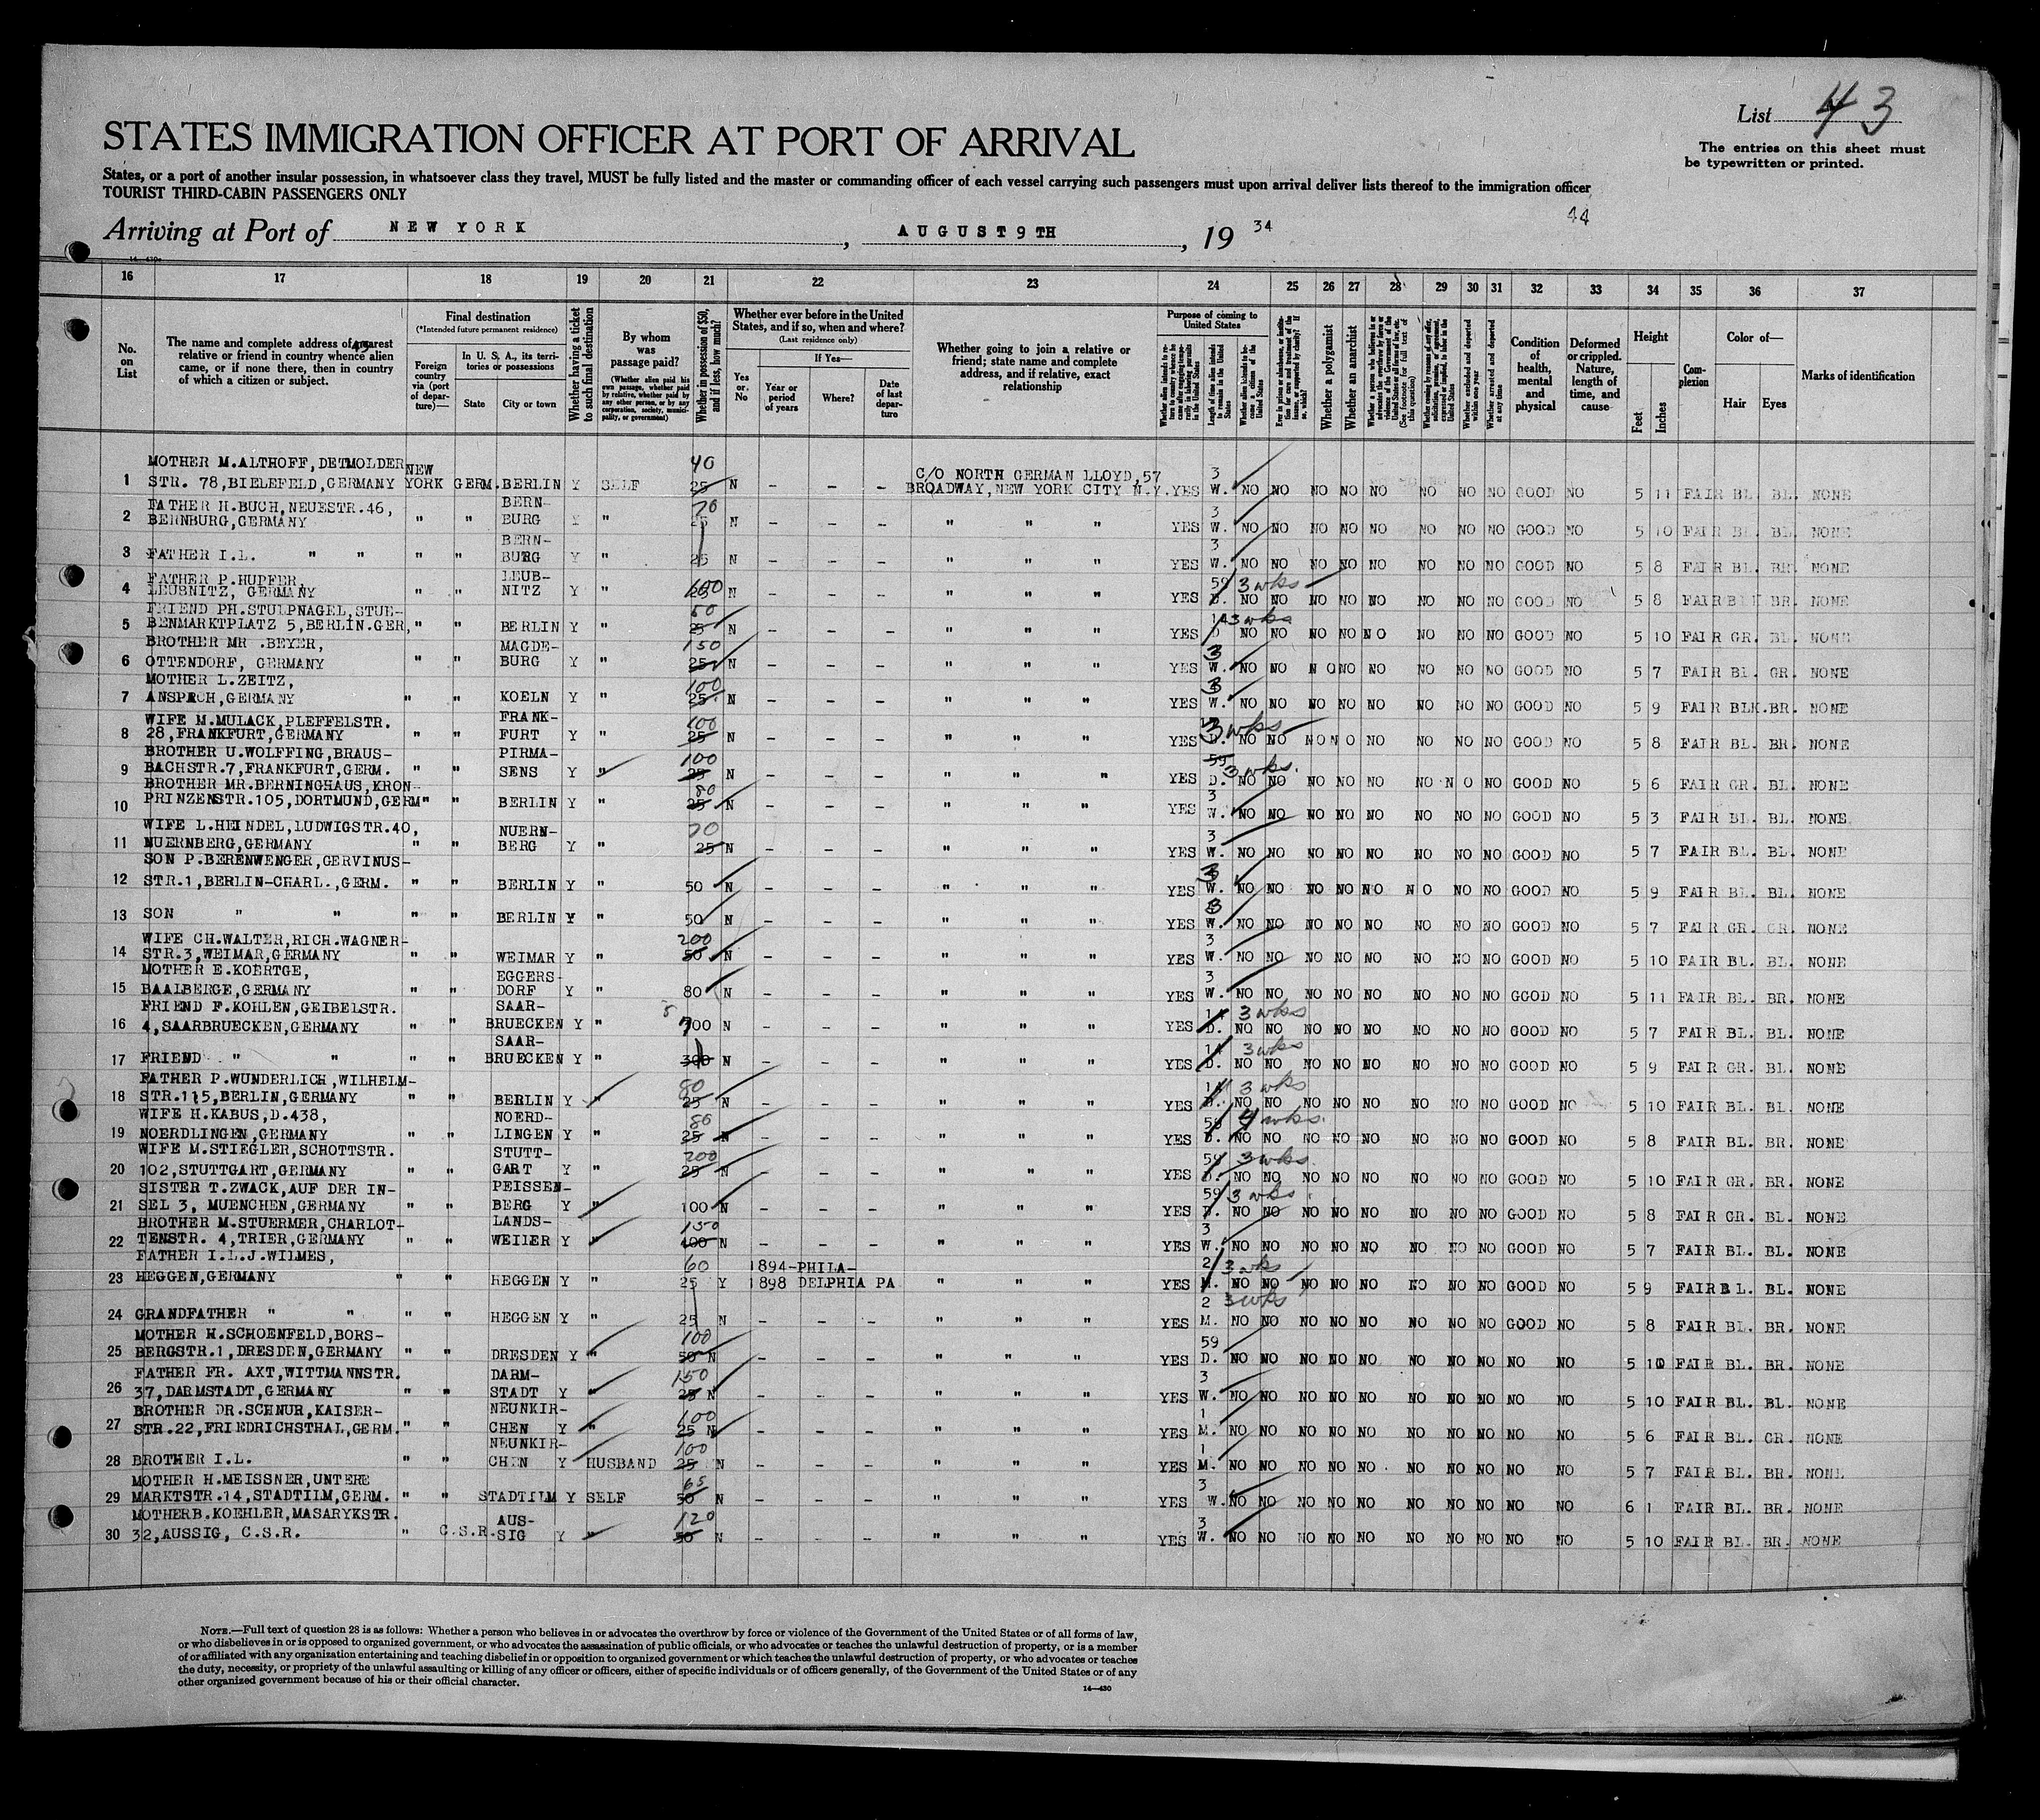 List 43
STATES IMMIGRATION OFFICER AT PORT OF ARRIVAL
The entries on this sheet must
be typewritten or printed.
States, or a port of another insular possession, in whatsoever class they travel, MUST be fully listed and the master or commanding officer of each vessel carrying such passengers must upon arrival deliver lists thereof to the immigration officer
TOURIST THIRD-CABIN PASSENGERS ONLY
44
Arriving at Port of NEW YORK, AUGUST 9 TH, 19 34
16 17 18 19 20 21 22 23 24 25 26 27 28 29 30 31 32 33 34 35 36 37
No. on List
The name and complete address of nearest relative or friend in country whence alien came, or if none there, then in country of which a citizen or subject.
Final destination
(*Intended future permanent residence)
Foreign country via (port of departure)—
In U. S. A., its territories or possessions
State
City or town
Whether having a ticket to such final destination
By whom was passage paid?
(Whether alien paid his own passage, whether paid by relative, whether paid by any other person, or by any corporation, society, municipality, or government)
Whether in possession of $50, and if less, how much?
Whether ever before in the United States, and if so, when and where?
(Last residence only)
Yes or No
If Yes—
Year or period of years
Where?
Date of last departure
Whether going to join a relative or friend; state name and complete address, and if relative, exact relationship
Purpose of coming to United States
Whether a polygamist
Whether an anarchist
Condition of health, mental and physical
Deformed or crippled. Nature, length of time, and cause
Height
Feet
Inches
Complexion
Color of—
Hair
Eyes
Marks of identification
MOTHER M.ALTHOFF, DETMOLDER NEW 40 C/O NORTH GERMAN LLOYD, 57 3
1 STR. 78, BIELEFELD, GERMANY YORK GERM. BERLIN Y SELF 25 N - - - BROADWAY, NEW YORK CITY N.Y. YES W. NO NO NO NO NO NO NO NO GOOD NO 5 11 FAIR BL. BL. NONE
FATHER H.BUCH, NEUESTR.46, BERN- 70 3
2 BERNBURG, GERMANY " " BURG Y " 25 N - - - " " " YES W. NO NO NO NO NO NO NO NO GOOD NO 5 10 FAIR BL. BL. NONE
BERN- 3
3 FATHER I.L. " " " " BURG Y " 25 N - - - " " " YES W. NO NO NO NO NO NO NO NO GOOD NO 5 8 FAIR BL. BR. NONE
FATHER P.HUPFER, LEUB- 59 3 wks
4 LEUBNITZ, GERMANY " " NITZ Y " 100 N - - - " " " YES D. NO NO NO NO NO NO NO NO GOOD NO 5 8 FAIR BLK BR. NONE
FRIEND PH.STULPNAGEL, STUE- 50 14 3 wks
5 BENMARKTPLATZ 5, BERLIN.GER. " " BERLIN Y " 25 N - - - " " " YES D NO NO NO NO NO NO NO NO GOOD NO 5 10 FAIR GR. BL. NONE
BROTHER MR .BEYER, MAGDE- 150 3
6 OTTENDORF, GERMANY " " BURG Y " 25 N - - - " " " YES W. NO NO NO NO NO NO NO NO GOOD NO 5 7 FAIR BL. GR. NONE
MOTHER L.ZEITZ, 100 3
7 ANSPACH, GERMANY " " KOELN Y " 25 N - - - " " " YES W. NO NO NO NO NO NO NO NO GOOD NO 5 9 FAIR BLK. BR. NONE
WIFE M.MULACK, PLEFFELSTR. FRANK- 100 3 wks
8 28, FRANKFURT, GERMANY " " FURT Y " 25 N - - - " " " YES D. NO NO NO NO NO NO NO NO GOOD NO 5 8 FAIR BL. BR. NONE
BROTHER U.WOLFFING, BRAUS- PIRMA- 100 59 3 wks.
9 BACHSTR.7, FRANKFURT, GERM. " " SENS Y " 25 N - - - " " " YES D. NO NO NO NO NO NO NO NO GOOD NO 5 6 FAIR GR. BL. NONE
BROTHER MR.BERNINGHAUS, KRON- 80 3
10 PRINZENSTR.105, DORTMUND, GERM " " BERLIN Y " 25 N - - - " " " YES W. NO NO NO NO NO NO NO NO GOOD NO 5 3 FAIR BL. BL. NONE
WIFE L.HEINDEL, LUDWIGSTR.40, NUERN- 70 3
11 NUERNBERG, GERMANY " " BERG Y " 25 N - - - " " " YES W. NO NO NO NO NO NO NO NO GOOD NO 5 7 FAIR BL. BL. NONE
SON P.BERENWENGER, GERVINUS- 3
12 STR.1, BERLIN-CHARL., GERM. " " BERLIN Y " 50 N - - - " " " YES W. NO NO NO NO NO NO NO NO GOOD NO 5 9 FAIR BL. BL. NONE
3
13 SON " " " " BERLIN Y " 50 N - - - " " " YES W. NO NO NO NO NO NO NO NO GOOD NO 5 7 FAIR GR. GR. NONE
WIFE CH.WALTER, RICH.WAGNER- 200 3
14 STR.3, WEIMAR, GERMANY " " WEIMAR Y " 50 N - - - " " " YES W. NO NO NO NO NO NO NO NO GOOD NO 5 10 FAIR BL. BL. NONE
MOTHER E.KOERTGE, EGGERS- 3
15 BAALBERGE, GERMANY " " DORF Y " 80 N - - - " " " YES W. NO NO NO NO NO NO NO NO GOOD NO 5 11 FAIR BL. BR. NONE
FRIEND F.KOHLEN, GEIBELSTR. SAAR- 14 3 wks
16 4, SAARBRUECKEN, GERMANY " " BRUECKEN Y " 700 N - - - " " " YES D. NO NO NO NO NO NO NO NO GOOD NO 5 7 FAIR BL. BL. NONE
SAAR- 14 3 wks
17 FRIEND " " " " BRUECKEN Y " 300 N - - - " " " YES D. NO NO NO NO NO NO NO NO GOOD NO 5 9 FAIR GR. BL. NONE
FATHER P.WUNDERLICH, WILHELM- 80 14 3 wks
18 STR.115, BERLIN, GERMANY " " BERLIN Y " 25 N - - - " " " YES D. NO NO NO NO NO NO NO NO GOOD NO 5 10 FAIR BL. BL. NONE
WIFE H.KABUS, D.438, NOERD- 80 4 wks.
19 NOERDLINGEN, GERMANY " " LINGEN Y " 25 N - - - " " " YES D. NO NO NO NO NO NO NO NO GOOD NO 5 8 FAIR BL. BR. NONE
WIFE M.STIEGLER, SCHOTTSTR. STUTT- 200 59 3 wks
20 102, STUTTGART, GERMANY " " GART Y " 25 N - - - " " " YES D. NO NO NO NO NO NO NO NO GOOD NO 5 10 FAIR GR. BR. NONE
SISTER T.ZWACK, AUF DER IN- PEISSEN- 59 3 wks
21 SEL 3, MUENCHEN, GERMANY " " BERG Y " 100 N - - - " " " YES D. NO NO NO NO NO NO NO NO GOOD NO 5 8 FAIR GR. BL. NONE
BROTHER M.STUERMER, CHARLOT- LANDS- 150 3
22 TENSTR. 4, TRIER, GERMANY " " WEILER Y " 100 N - - - " " " YES W. NO NO NO NO NO NO NO NO GOOD NO 5 7 FAIR BL. BL. NONE
FATHER I.L.J.WILMES, 60 1894-PHILA- 2 3 wks
23 HEGGEN, GERMANY " " HEGGEN Y " 25 Y 1898 DELPHIA PA " " " YES M. NO NO NO NO NO NO NO NO GOOD NO 5 9 FAIR BL. BL. NONE
2 3 wks
24 GRANDFATHER " " " " HEGGEN Y " 25 N - - - " " " YES M. NO NO NO NO NO NO NO NO GOOD NO 5 8 FAIR BL. BR. NONE
MOTHER H.SCHOENFELD, BORS- 100 59
25 BERGSTR.1, DRESDEN, GERMANY " " DRESDEN Y " 50 N - - - " " " YES D. NO NO NO NO NO NO NO NO NO NO 5 10 FAIR BL. BR. NONE
FATHER FR. AXT, WITTMANNSTR. DARM- 150 3
26 37, DARMSTADT, GERMANY " " STADT Y " 25 N - - - " " " YES W. NO NO NO NO NO NO NO NO NO NO 5 10 FAIR BL. BL. NONE
BROTHER DR.SCHNUR, KAISER- NEUNKIR- 100 1
27 STR.22, FRIEDRICHSTHAL, GERM. " " CHEN Y " 25 N - - - " " " YES M. NO NO NO NO NO NO NO NO NO NO 5 6 FAIR BL. GR. NONE
NEUNKIR- 100 1
28 BROTHER I.L. " " CHEN Y HUSBAND 25 N - - - " " " YES M. NO NO NO NO NO NO NO NO NO NO 5 7 FAIR BL. BR. NONE
MOTHER H.MEISSNER, UNTERE 65 3
29 MARKTSTR.14, STADTILM, GERM. " " STADTILM Y SELF 50 N - - - " " " YES W. NO NO NO NO NO NO NO NO NO NO 6 1 FAIR BL. BR. NONE
MOTHER B.KOEHLER, MASARYKSTR. AUS- 120 3
30 32, AUSSIG, C.S.R. " C.S.R. SIG Y " 50 N - - - " " " YES W. NO NO NO NO NO NO NO NO NO NO 5 10 FAIR BL. BR. NONE
NOTE.—Full text of question 28 is as follows: Whether a person who believes in or advocates the overthrow by force or violence of the Government of the United States or of all forms of law,
or who disbelieves in or is opposed to organized government, or who advocates the assassination of public officials, or who advocates or teaches the unlawful destruction of property, or is a member
of or affiliated with any organization entertaining and teaching disbelief in or opposition to organized government or which teaches the unlawful destruction of property, or who advocates or teaches
the duty, necessity, or propriety of the unlawful assaulting or killing of any officer or officers, either of specific individuals or of officers generally, of the Government of the United States or of any
other organized government because of his or their official character.
14—430